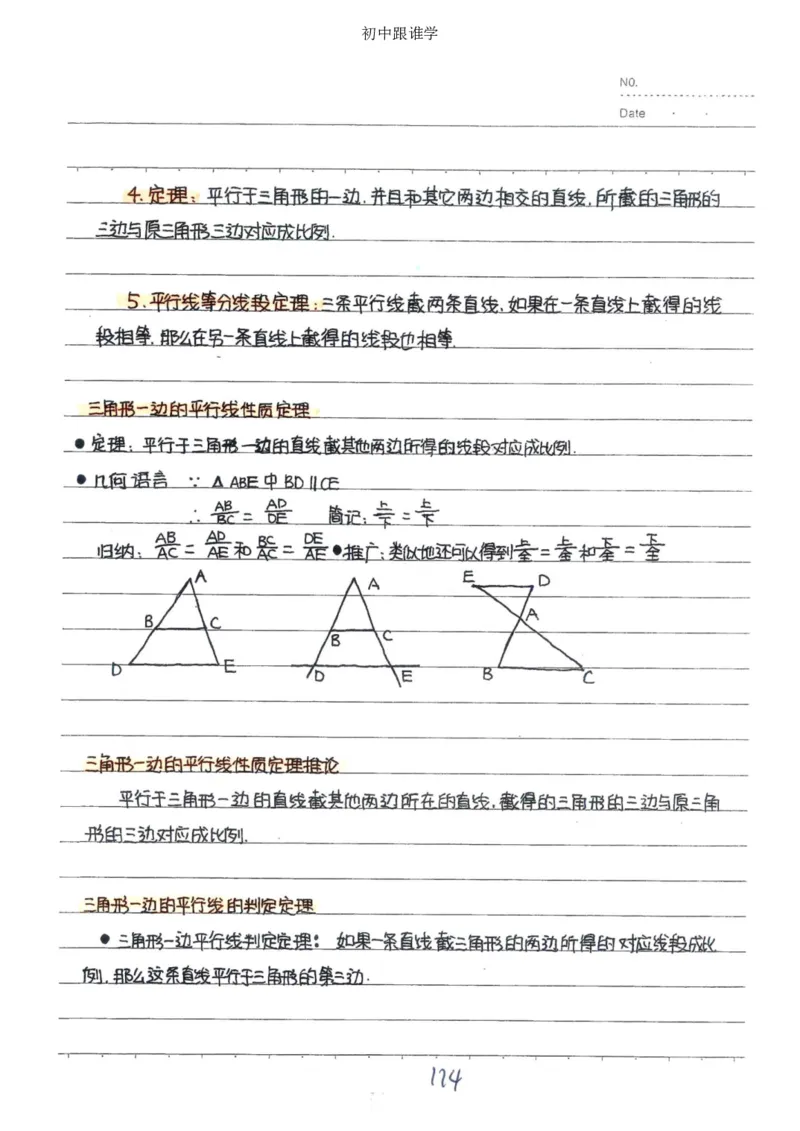 初中跟谁学
NO.
Date
4.定理：平行于三角形的一边,并且和其它两边相交的直线,所截的三角形的
三边与原三角形三边对应成比例.
5.平行线等分线段定理：三条平行线截两条直线,如果在一条直线上截得的线
段相等,那么在另一条直线上截得的线段也相等.
三角形一边的平行线性质定理
●定理：平行于三角形一边的直线截其他两边所得的线段对应成比例.
●几何语言 ∵ △ABE中BD∥CE
∴ AB/BC = AD/DE 简记：上/下 = 上/下
归纳：AB/AC = AD/AE 和 BC/AC = DE/AE ●推广：类似地还可以得到 上/全 = 上/全 和 下/全 = 下/全
A A E D
B C B C A
D E D E B C
三角形一边的平行线性质定理推论
平行于三角形一边的直线截其他两边所在的直线,截得的三角形的三边与原三角
形的三边对应成比例.
三角形一边的平行线的判定定理
●三角形一边平行线判定定理：如果一条直线截三角形的两边所得的对应线段成比
例,那么这条直线平行于三角形的第三边.
124